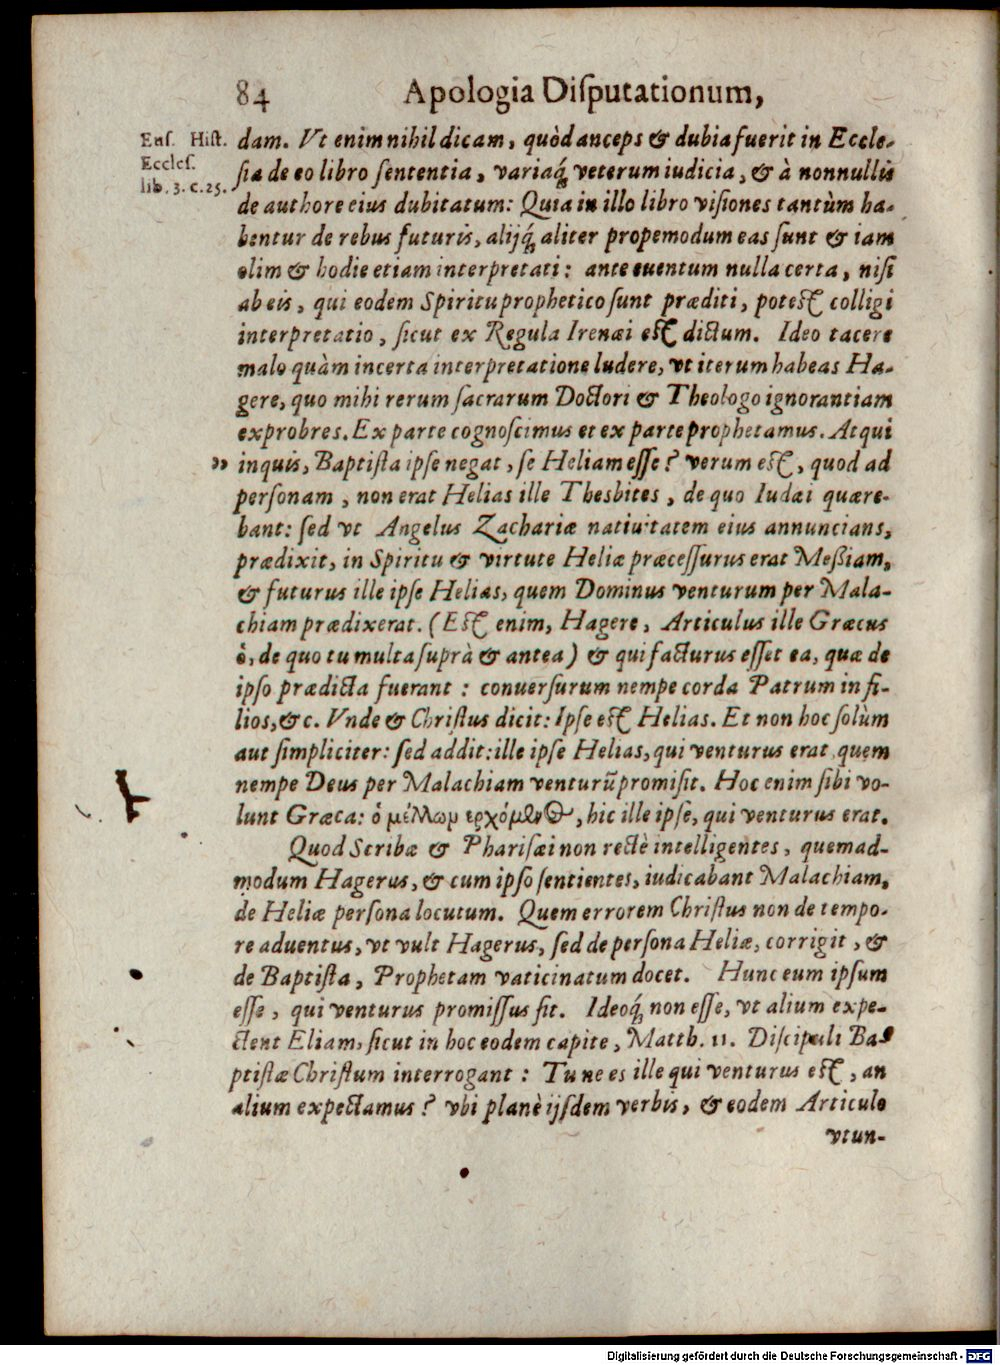 84 Apologia Diſputationum,
Euſ. Hiſt.
Eccleſ.
lib. 3. c. 25.
dam. Vt enim nihil dicam, quòd anceps & dubia fuerit in Eccle-
ſia de eo libro ſententia, variaq́ veterum iudicia, & à nonnullis
de authore eius dubitatum: Quia in illo libro viſiones tantùm ha-
bentur de rebus futuris, alijq́ aliter propemodum eas ſunt & iam
olim & hodie etiam interpretati: ante euentum nulla certa, niſi
ab eis, qui eodem Spiritu prophetico ſunt præditi, poteſt colligi
interpretatio, ſicut ex Regula Irenæi eſt dictum. Ideo tacere
malo quàm incerta interpretatione ludere, vt iterum habeas Ha-
gere, quo mihi rerum ſacrarum Doctori & Theologo ignorantiam
exprobres. Ex parte cognoſcimus et ex parte prophetamus. Atqui
„ inquis, Baptiſta ipſe negat, ſe Heliam eſſe? verum eſt, quod ad
perſonam, non erat Helias ille Thesbites, de quo Iudæi quære-
bant: ſed vt Angelus Zachariæ natiuitatem eius annuncians,
prædixit, in Spiritu & virtute Heliæ præceſſurus erat Meßiam,
& futurus ille ipſe Helias, quem Dominus venturum per Mala-
chiam prædixerat. (Eſt enim, Hagere, Articulus ille Græcus
ὁ, de quo tu multa ſuprà & antea) & qui facturus eſſet ea, quæ de
ipſo prædicta fuerant: conuerſurum nempe corda Patrum in fi-
lios, &c. Vnde & Chriſtus dicit: Ipſe eſt Helias. Et non hoc ſolùm
aut ſimpliciter: ſed addit: ille ipſe Helias, qui venturus erat, quem
nempe Deus per Malachiam venturũ promiſit. Hoc enim ſibi vo-
lunt Græca: ὁ μέλλωμ ερχόμενος, hic ille ipſe, qui venturus erat.
Quod Scribæ & Phariſæi non rectè intelligentes, quemad-
modum Hagerus, & cum ipſo ſentientes, iudicabant Malachiam,
de Heliæ perſona locutum. Quem errorem Chriſtus non de tempo-
re aduentus, vt vult Hagerus, ſed de perſona Heliæ, corrigit, &
de Baptiſta, Prophetam vaticinatum docet. Hunc eum ipſum
eſſe, qui venturus promiſſus ſit. Ideoq́ non eſſe, vt alium expe-
ctent Eliam, ſicut in hoc eodem capite, Matth. 11. Diſcipuli Ba-
ptiſtæ Chriſtum interrogant: Tu ne es ille qui venturus eſt, an
alium expectamus? vbi planè ijſdem verbis, & eodem Articulo
vtun-
Digitalisierung gefördert durch die Deutsche Forschungsgemeinschaft - DFG